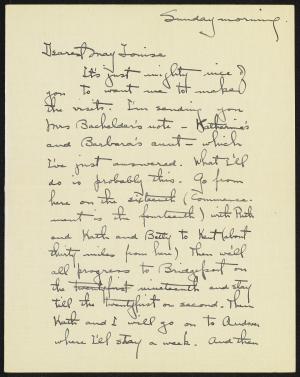 Sunday morning.
Dearest May Louise
It's just mighty nice of
you to want me to make
the visits. I'm sending you
Mrs Bachelder's note – Katharine's
and Barbara's aunt – which
I've just answered. What I'll
do is probably this. Go from
here on the sixteenth (Commence-
ment is the fourteenth) with Ruth
and Kath and Betty to Kent (about
thirty miles from here) Then we'll
all progress to Bridgeport on
the twentyfirst nineteenth and stay
till the twentyfirst or second. Then
Kath and I will go on to Andover
where I'll stay a week. And then